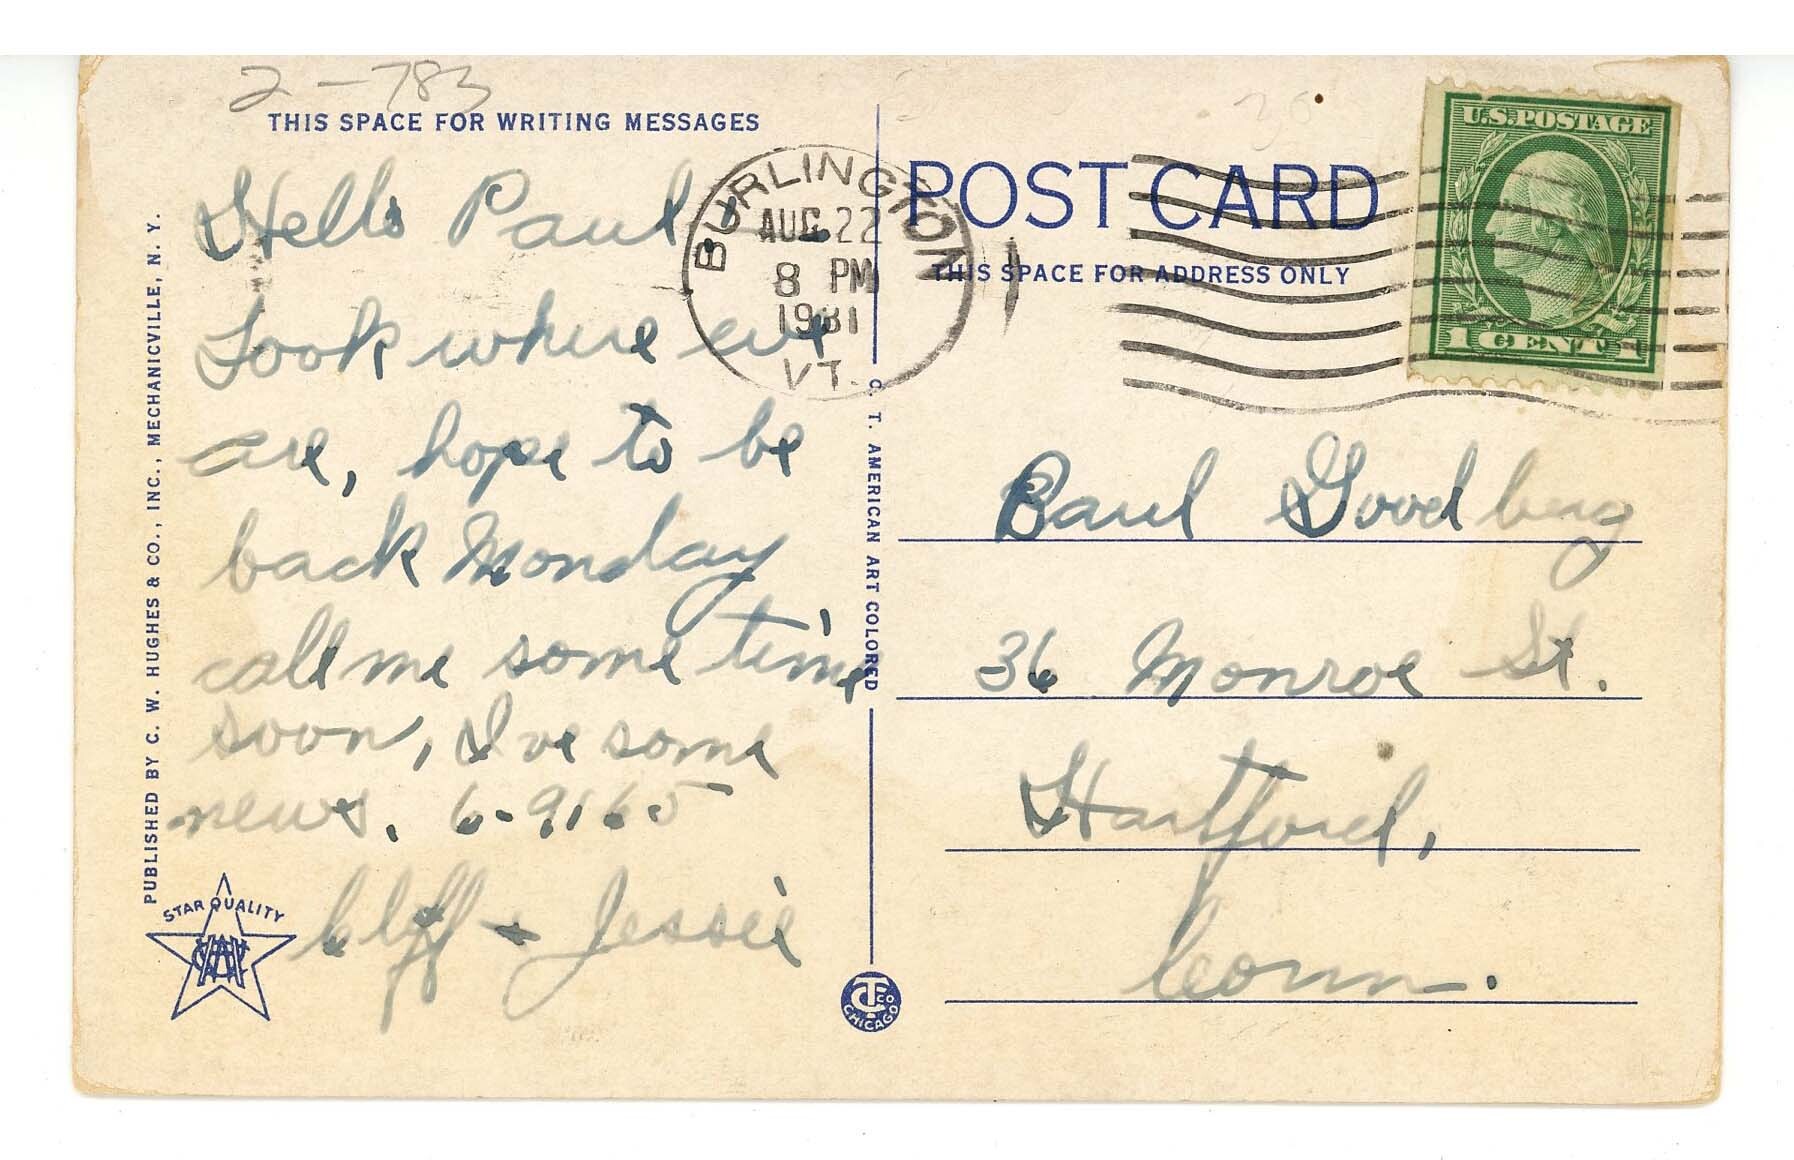 2-783
THIS SPACE FOR WRITING MESSAGES
Hello Paul
Look where we
are, hope to be
back Monday
call me some time
soon, I've some
news. 6-9165
Cliff + Jessie
PUBLISHED BY C. W. HUGHES & CO., INC., MECHANICVILLE, N. Y.
STAR QUALITY
C. T. AMERICAN ART COLORED
CT CO
CHICAGO
BURLINGTON
AUG 22
8 PM
1931
VT.
POST CARD
THIS SPACE FOR ADDRESS ONLY
U.S. POSTAGE
1 CENT 1
Paul Goodberg
36 Monroe St.
Hartford,
Conn.